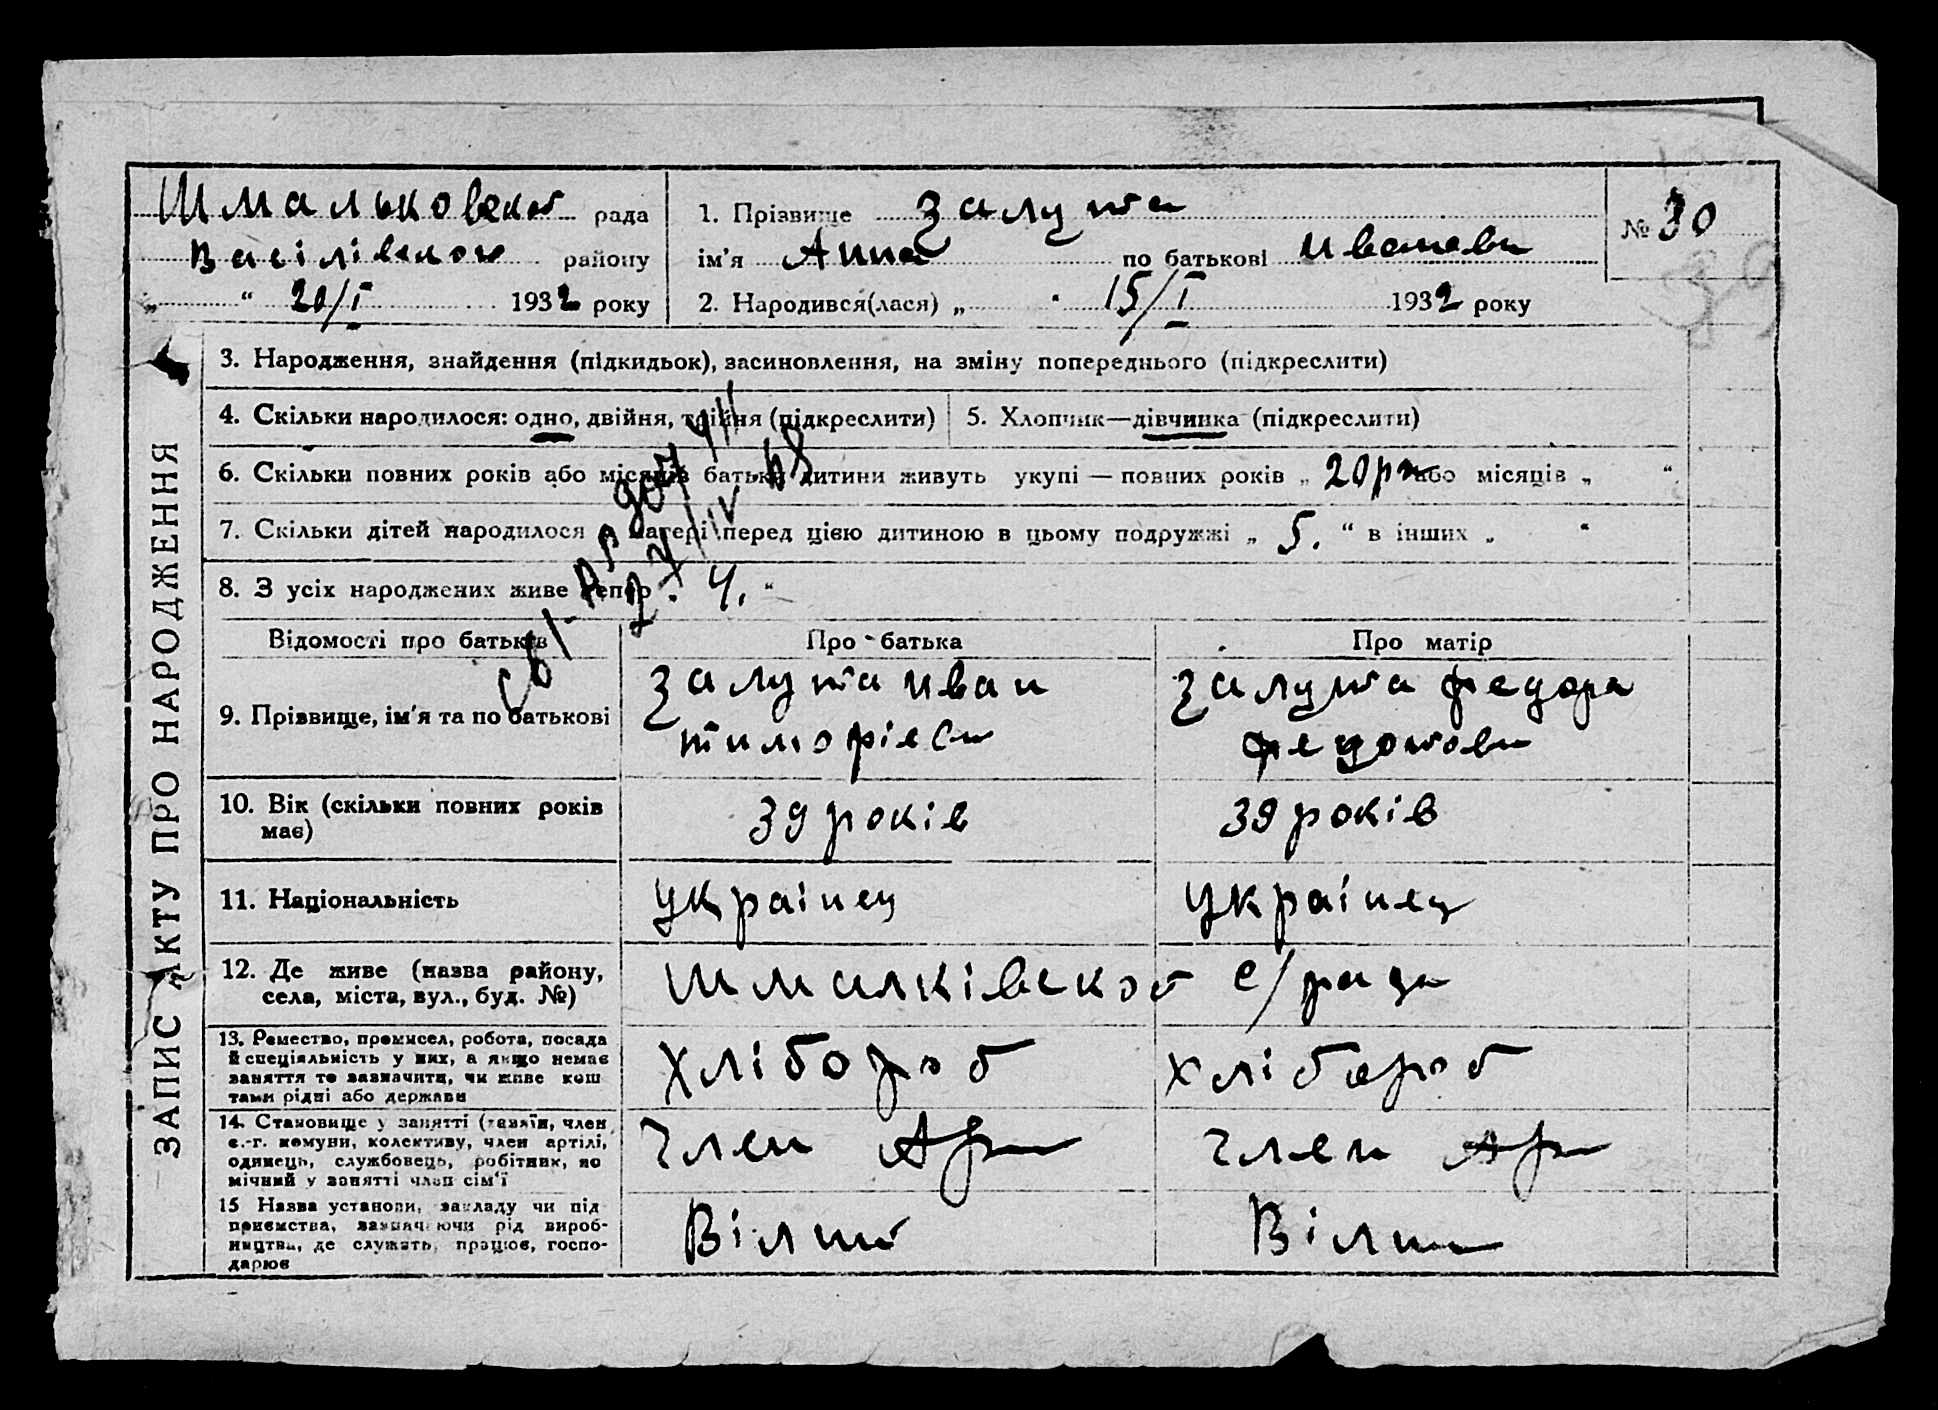 ЗАПИС АКТУ ПРО НАРОДЖЕННЯ
Шмальковской рада
Васілівского району
„ “ 20/I 1932 року
1. Прізвище Залута
ім’я Анна по батькові Ивановн
2. Народився(лася) „ “ 15/I 1932 року
№ 30
39
3. Народження, знайдення (підкидьок), засиновлення, на зміну попереднього (підкреслити)
4. Скільки народилося: одно, двійня, трійня (підкреслити)
5. Хлопчик—дівчинка (підкреслити)
6. Скільки повних років або місяців батьки дитини живуть укупі — повних років „ 20 або місяців „ “
7. Скільки дітей народилося матері перед цією дитиною в цьому подружжі „ 5. “ в інших „ “
8. З усіх народжених живе тепер 4. “
Відомості про батьків
Про батька
Про матір
9. Прізвище, ім’я та по батькові
Залута Иван
тимофіев
Залута федора
федотовн
10. Вік (скільки повних років
має)
39 років
39 років
11. Національність
українец
українец
12. Де живе (назва району,
села, міста, вул., буд. №)
Шмалківской с/рада
13. Ремество, промисел, робота, посада
й спеціяльність у них, а якщо немає
заняття то зазначити, чи живе кош
тами рідні або держави
хлібороб
хлібороб
14. Становище у занятті (хазяїн, член
с.-г. комуни, колективу, член артілі,
одинець, службовець, робітник, по
мічний у занятті член сім’ї
член Ар
член Ар
15 Назва установи, закладу чи під
приємства, зазначаючи рід вироб-
ництва, де служать, працює, госпо-
дарює